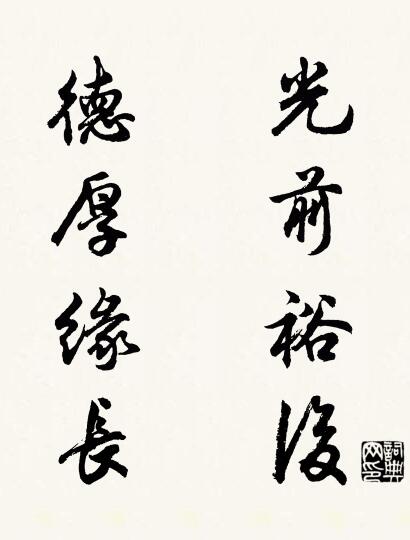 光前裕後
德厚缘長
詞典网印